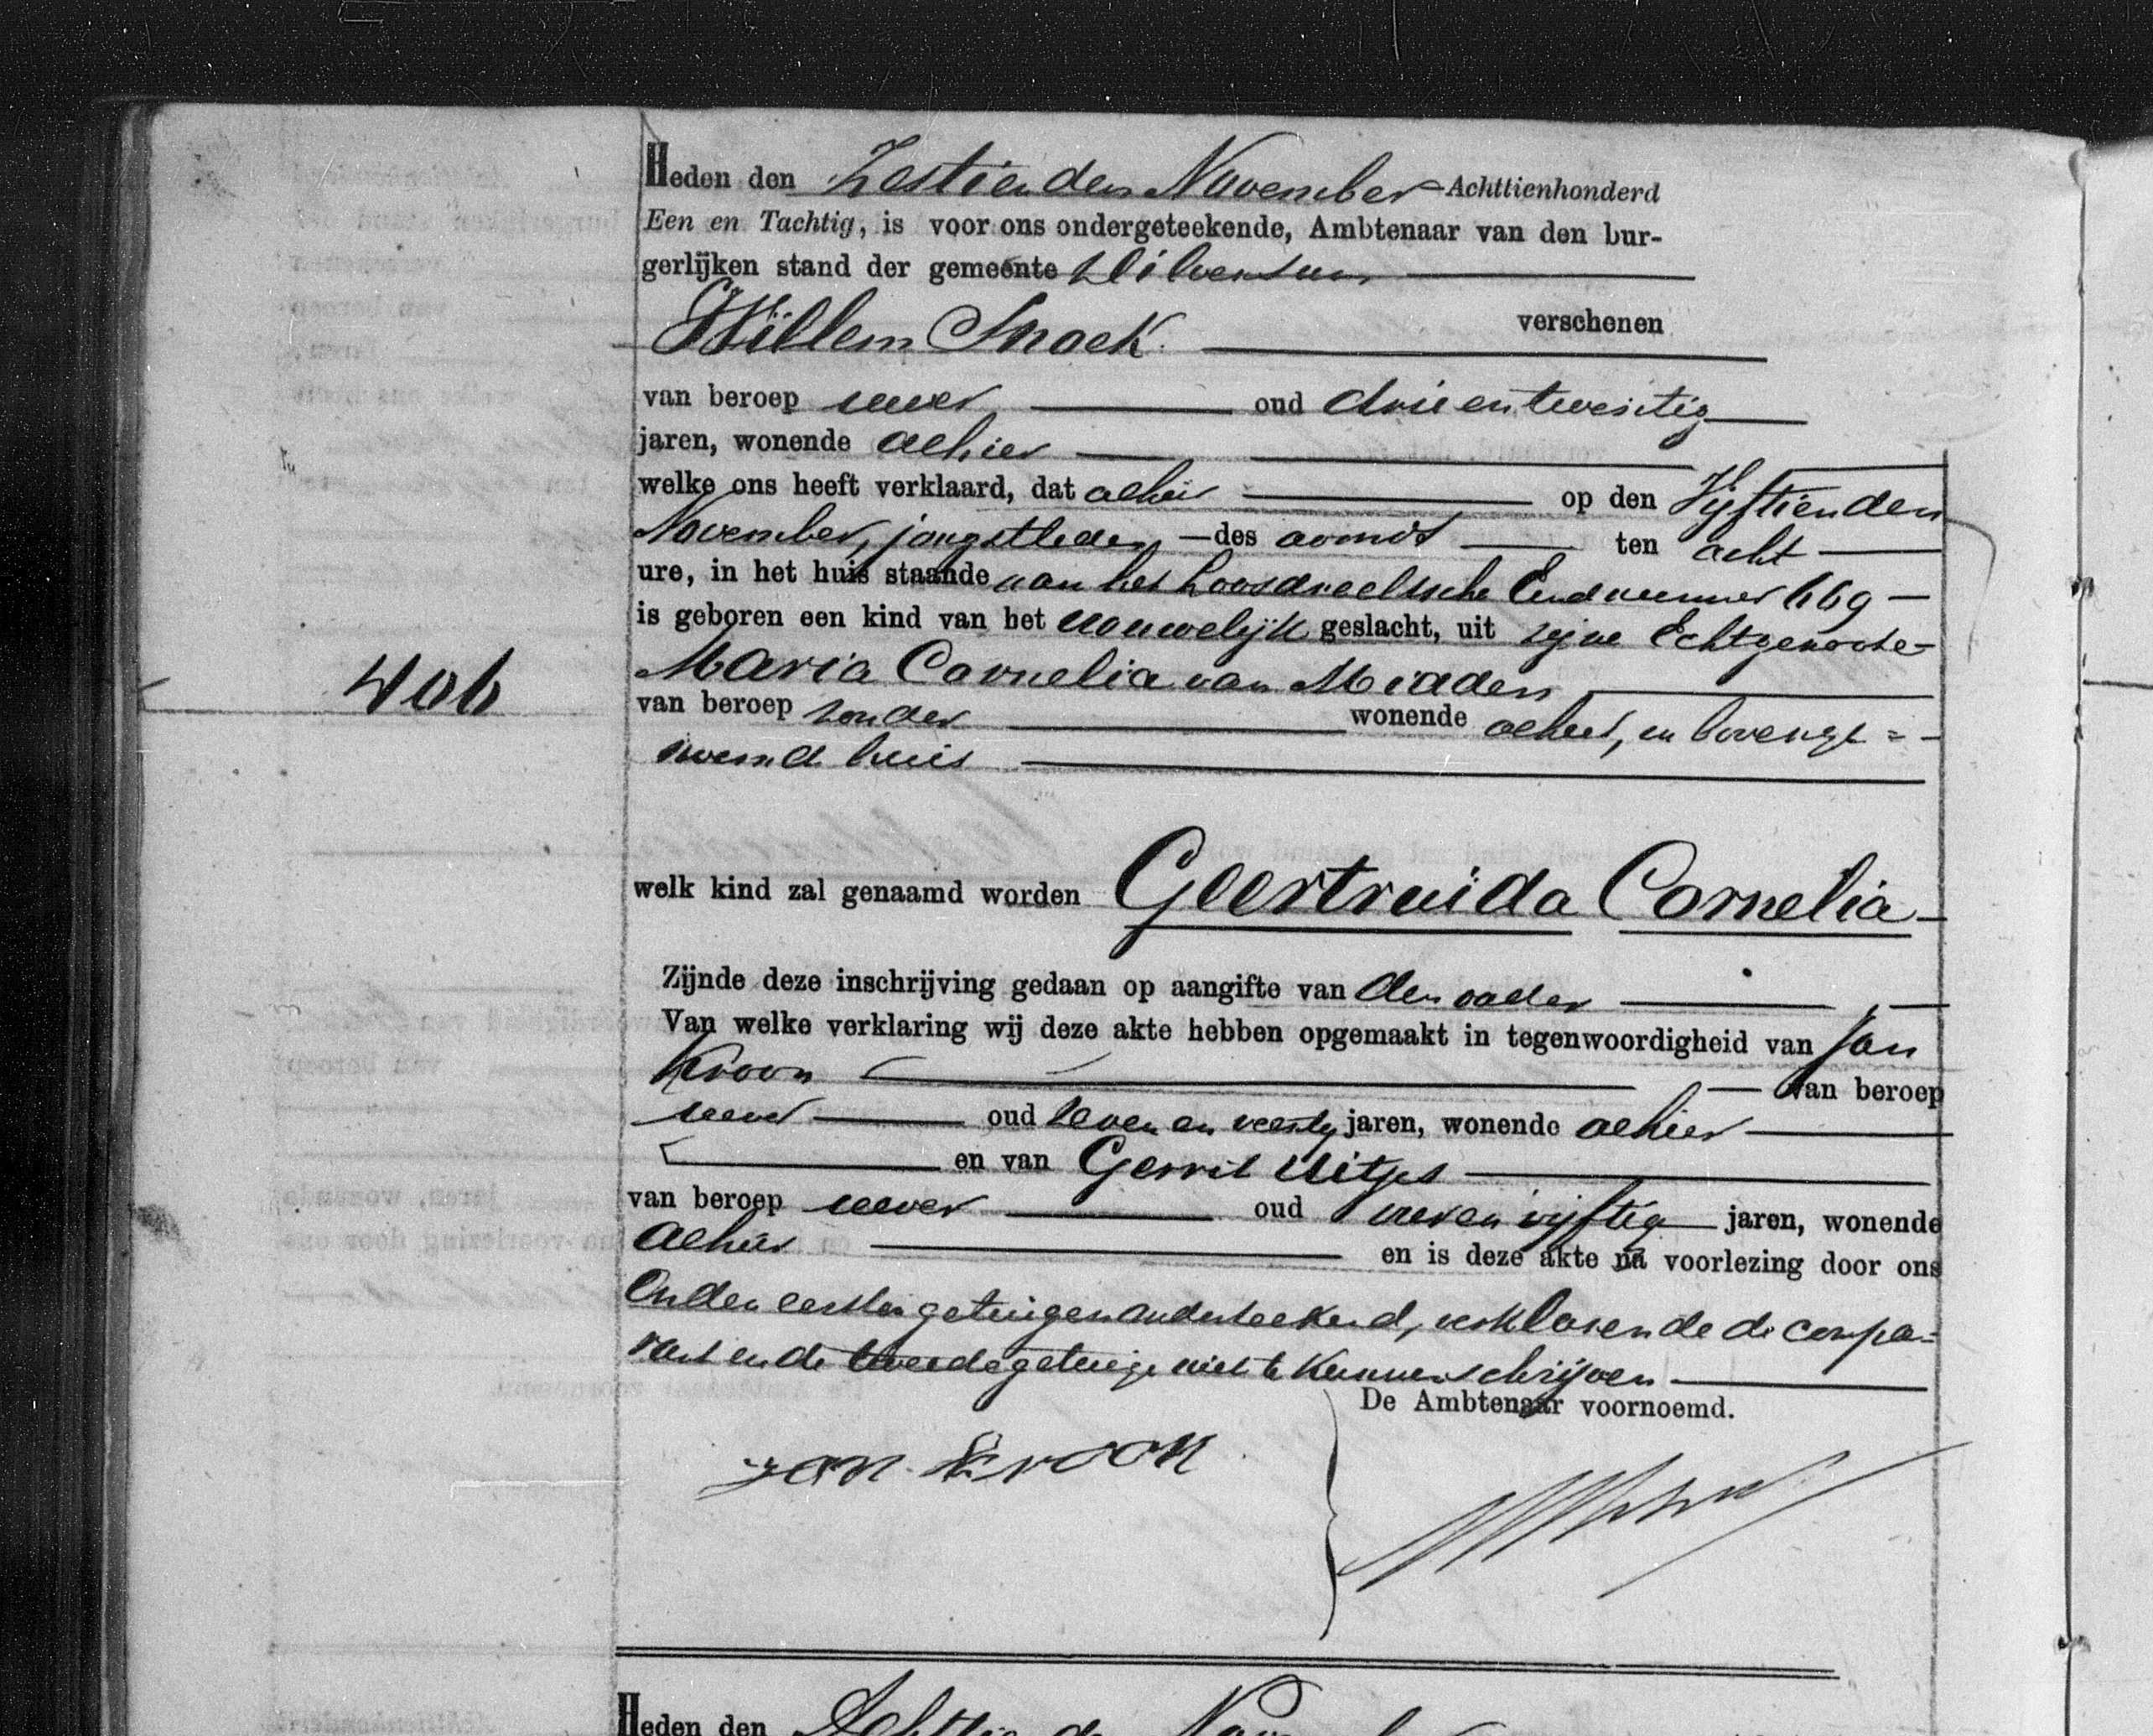 Heden den Zestienden November Achttienhonderd
Een en Tachtig, is voor ons ondergeteekende, Ambtenaar van den bur-
gerlijken stand der gemeente Hilversum
verschenen
Willem Snoek
van beroep wever oud drieentwentig
jaren, wonende alhier
welke ons heeft verklaard, dat alhier op den Vijftienden
November, jongstleden des avonds ten acht
ure, in het huis staande aan het Loosdrechtsche End nummer 669
is geboren een kind van het vrouwelijk geslacht, uit zijne Echtgenoote
406
Maria Cornelia van
van beroep zonder wonende alhier, in bovenge=
noemd huis
welk kind zal genaamd worden Geertruida Cornelia
Zijnde deze inschrijving gedaan op aangifte van den vader
Van welke verklaring wij deze akte hebben opgemaakt in tegenwoordigheid van Jan
Kroon van beroep
wever oud zeven en veertig jaren, wonende alhier
en van Gerrit Uitges
van beroep wever oud vijftig jaren, wonende
alhier en is deze akte na voorlezing door ons
en den eersten getuigen onderteekend, verklarende de compa=
rant en de tweede getuige niet te kunnen schrijven
De Ambtenaar voornoemd.
Jan Kroon
Heden den Achttienden